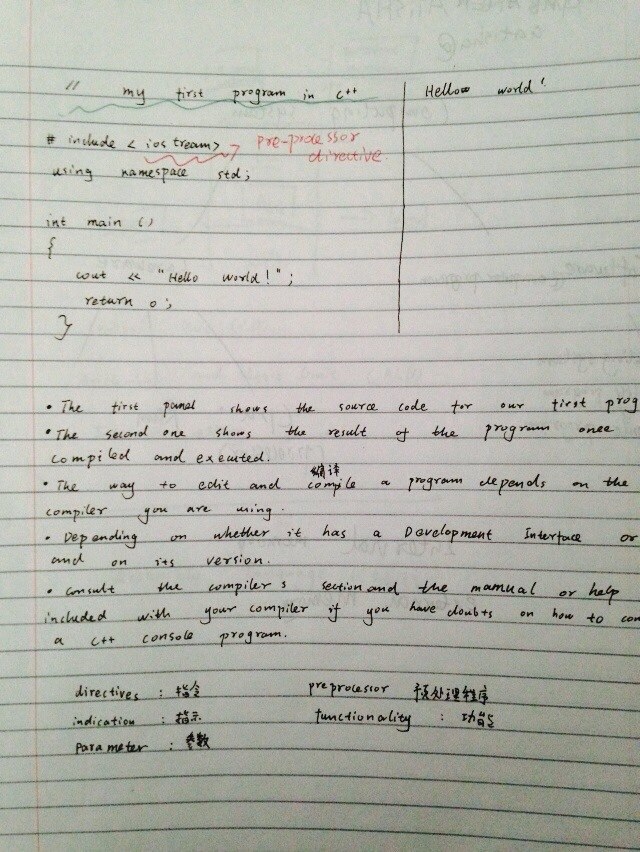 // my first program in c++
Hello world!
# include < iostream>
pre-processor
directive.
using namespace std;
int main ()
{
cout << "Hello world!";
return 0;
}
• The first panel shows the source code for our first prog
• The second one shows the result of the program once
compiled and executed.
编译
• The way to edit and compile a program depends on the
compiler you are using.
• Depending on whether it has a Development Interface or
and on its version.
• consult the compiler s section and the manual or help
included with your compiler if you have doubts on how to com
a c++ console program.
directives : 指令
preprocessor 预处理程序
indication : 指示
functionality : 功能
parameter : 参数